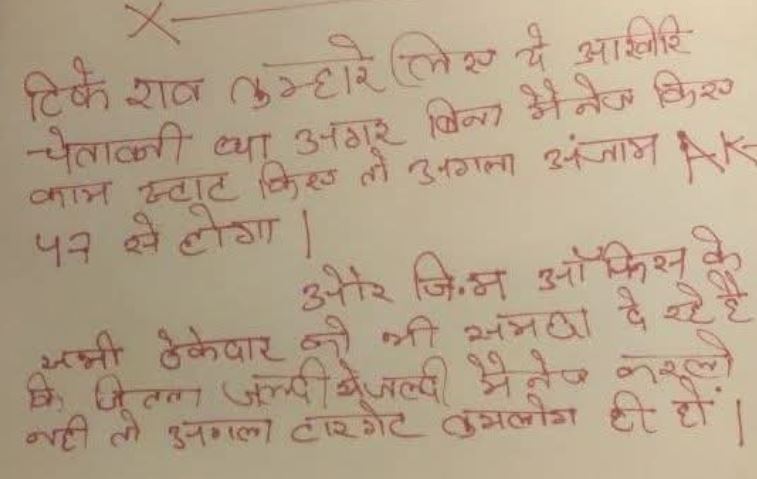 टिके राव तुम्हारे लिए ये आखीरि
चेतावनी था अगर बिना मैनेज किए
काम स्टाट किए तो अगला अंजाम AK-
47 से होगा |
और जि.म ऑफिस के
सभी ठेकेदार को भी समझा दे रहे है
कि जितना जल्दी से जल्दी मैनेज करलो
नही तो अगला टारगेट तुमलोग ही हों |